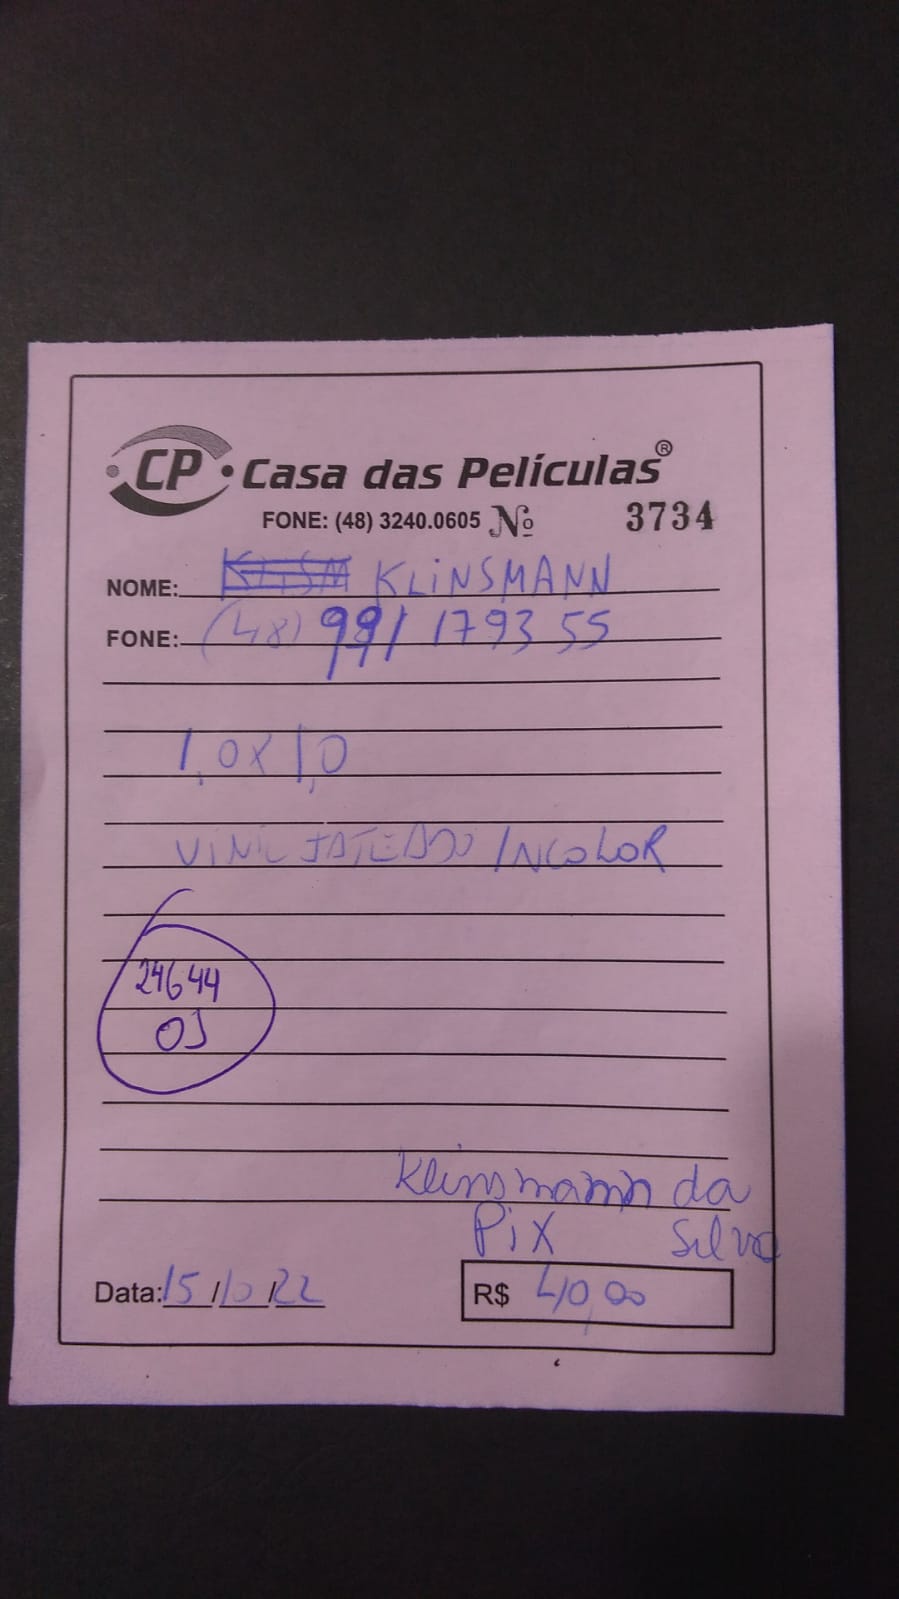 CP Casa das Películas®
FONE: (48) 3240.0605 Nº 3734
NOME: KLINSMANN
FONE: (48) 991179355
1,0 X 1,0
VINIL JATEADO INCOLOR
24644
Klinsmann da
Pix Silva
Data: 15/10/22 R$ 40,00